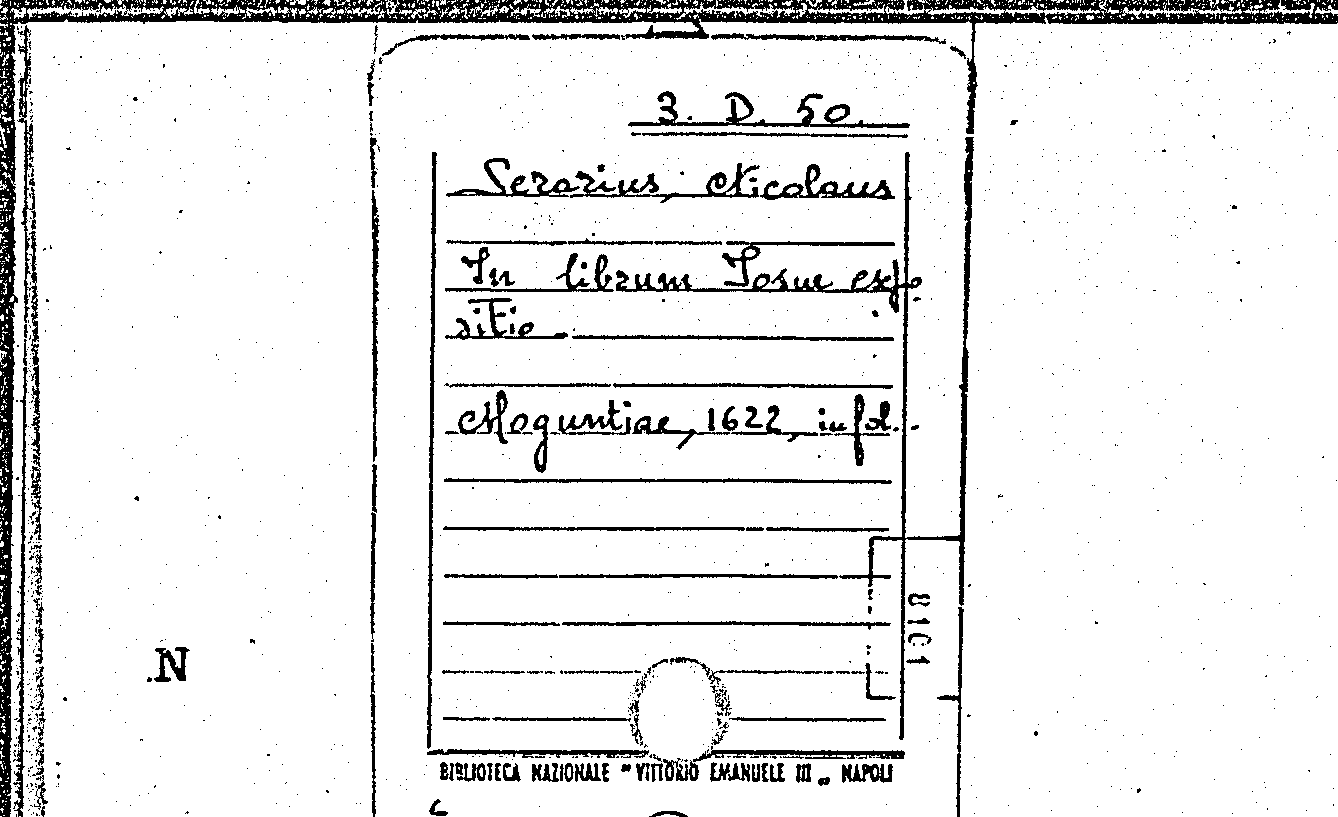 3. D. 50.
Serarius, Nicolaus
In librum Iosue expo
sitio
Moguntiae, 1622, in fol.
8101
N
BIBLIOTECA NAZIONALE "VITTORIO EMANUELE III„ NAPOLI